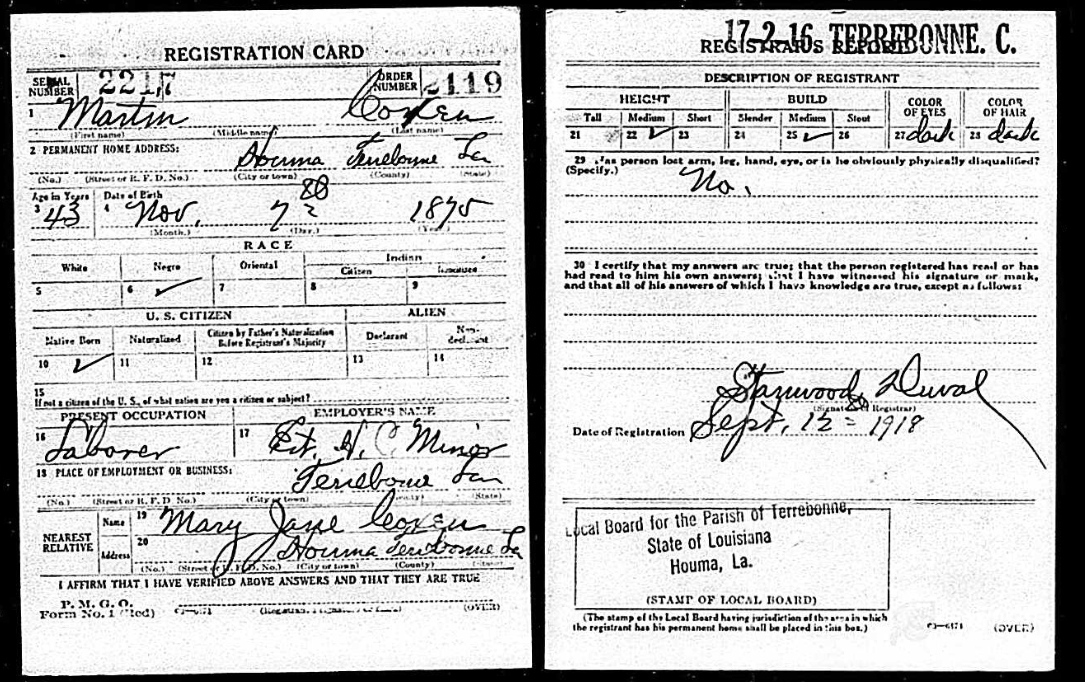 REGISTRATION CARD
SERIAL NUMBER 2217 ORDER NUMBER 2119
1 Martin Coxen
(First name) (Middle name) (Last name)
2 PERMANENT HOME ADDRESS:
Houma Terrebonne La
(No.) (Street or R. F. D. No.) (City or town) (County) (State)
Age in Years Date of Birth
3 43 4 Nov. 7 1875
(Month.) (Day.) (Year.)
RACE
White Negro Oriental Indian
Citizen Noncitizen
5 6 ✓ 7 8 9
U. S. CITIZEN ALIEN
Native Born Naturalized Citizen by Father's Naturalization Before Registrant's Majority Declarant Non-declarant
10 ✓ 11 12 13 14
15
If not a citizen of the U. S., of what nation are you a citizen or subject?
PRESENT OCCUPATION EMPLOYER'S NAME
16 Laborer 17 Est. H. C. Minor
18 PLACE OF EMPLOYMENT OR BUSINESS:
Terrebonne La
(No.) (Street or R. F. D. No.) (City or town) (County) (State)
NEAREST RELATIVE
Name 19 Mary Jane Coxen
Address 20 Houma Terrebonne La
(No.) (Street or R. F. D. No.) (City or town) (County) (State)
I AFFIRM THAT I HAVE VERIFIED ABOVE ANSWERS AND THAT THEY ARE TRUE
P. M. G. O.
Form No. 1 (Red) (OVER)
17-2-16 TERREBONNE. C.
REGISTRAR'S REPORT
DESCRIPTION OF REGISTRANT
HEIGHT BUILD COLOR OF EYES COLOR OF HAIR
Tall Medium Short Slender Medium Stout
21 22 ✓ 23 24 25 ✓ 26 27 dark 28 dark
29 Has person lost arm, leg, hand, eye, or is he obviously physically disqualified?
(Specify.) No.
30 I certify that my answers are true; that the person registered has read or has
had read to him his own answers; that I have witnessed his signature or mark,
and that all of his answers of which I have knowledge are true, except as follows:
Stanwood Duval
(Signature of Registrar)
Date of Registration Sept. 12 1918
Local Board for the Parish of Terrebonne,
State of Louisiana
Houma, La.
(STAMP OF LOCAL BOARD)
(The stamp of the Local Board having jurisdiction of the area in which
the registrant has his permanent home shall be placed in this box.)
(OVER)